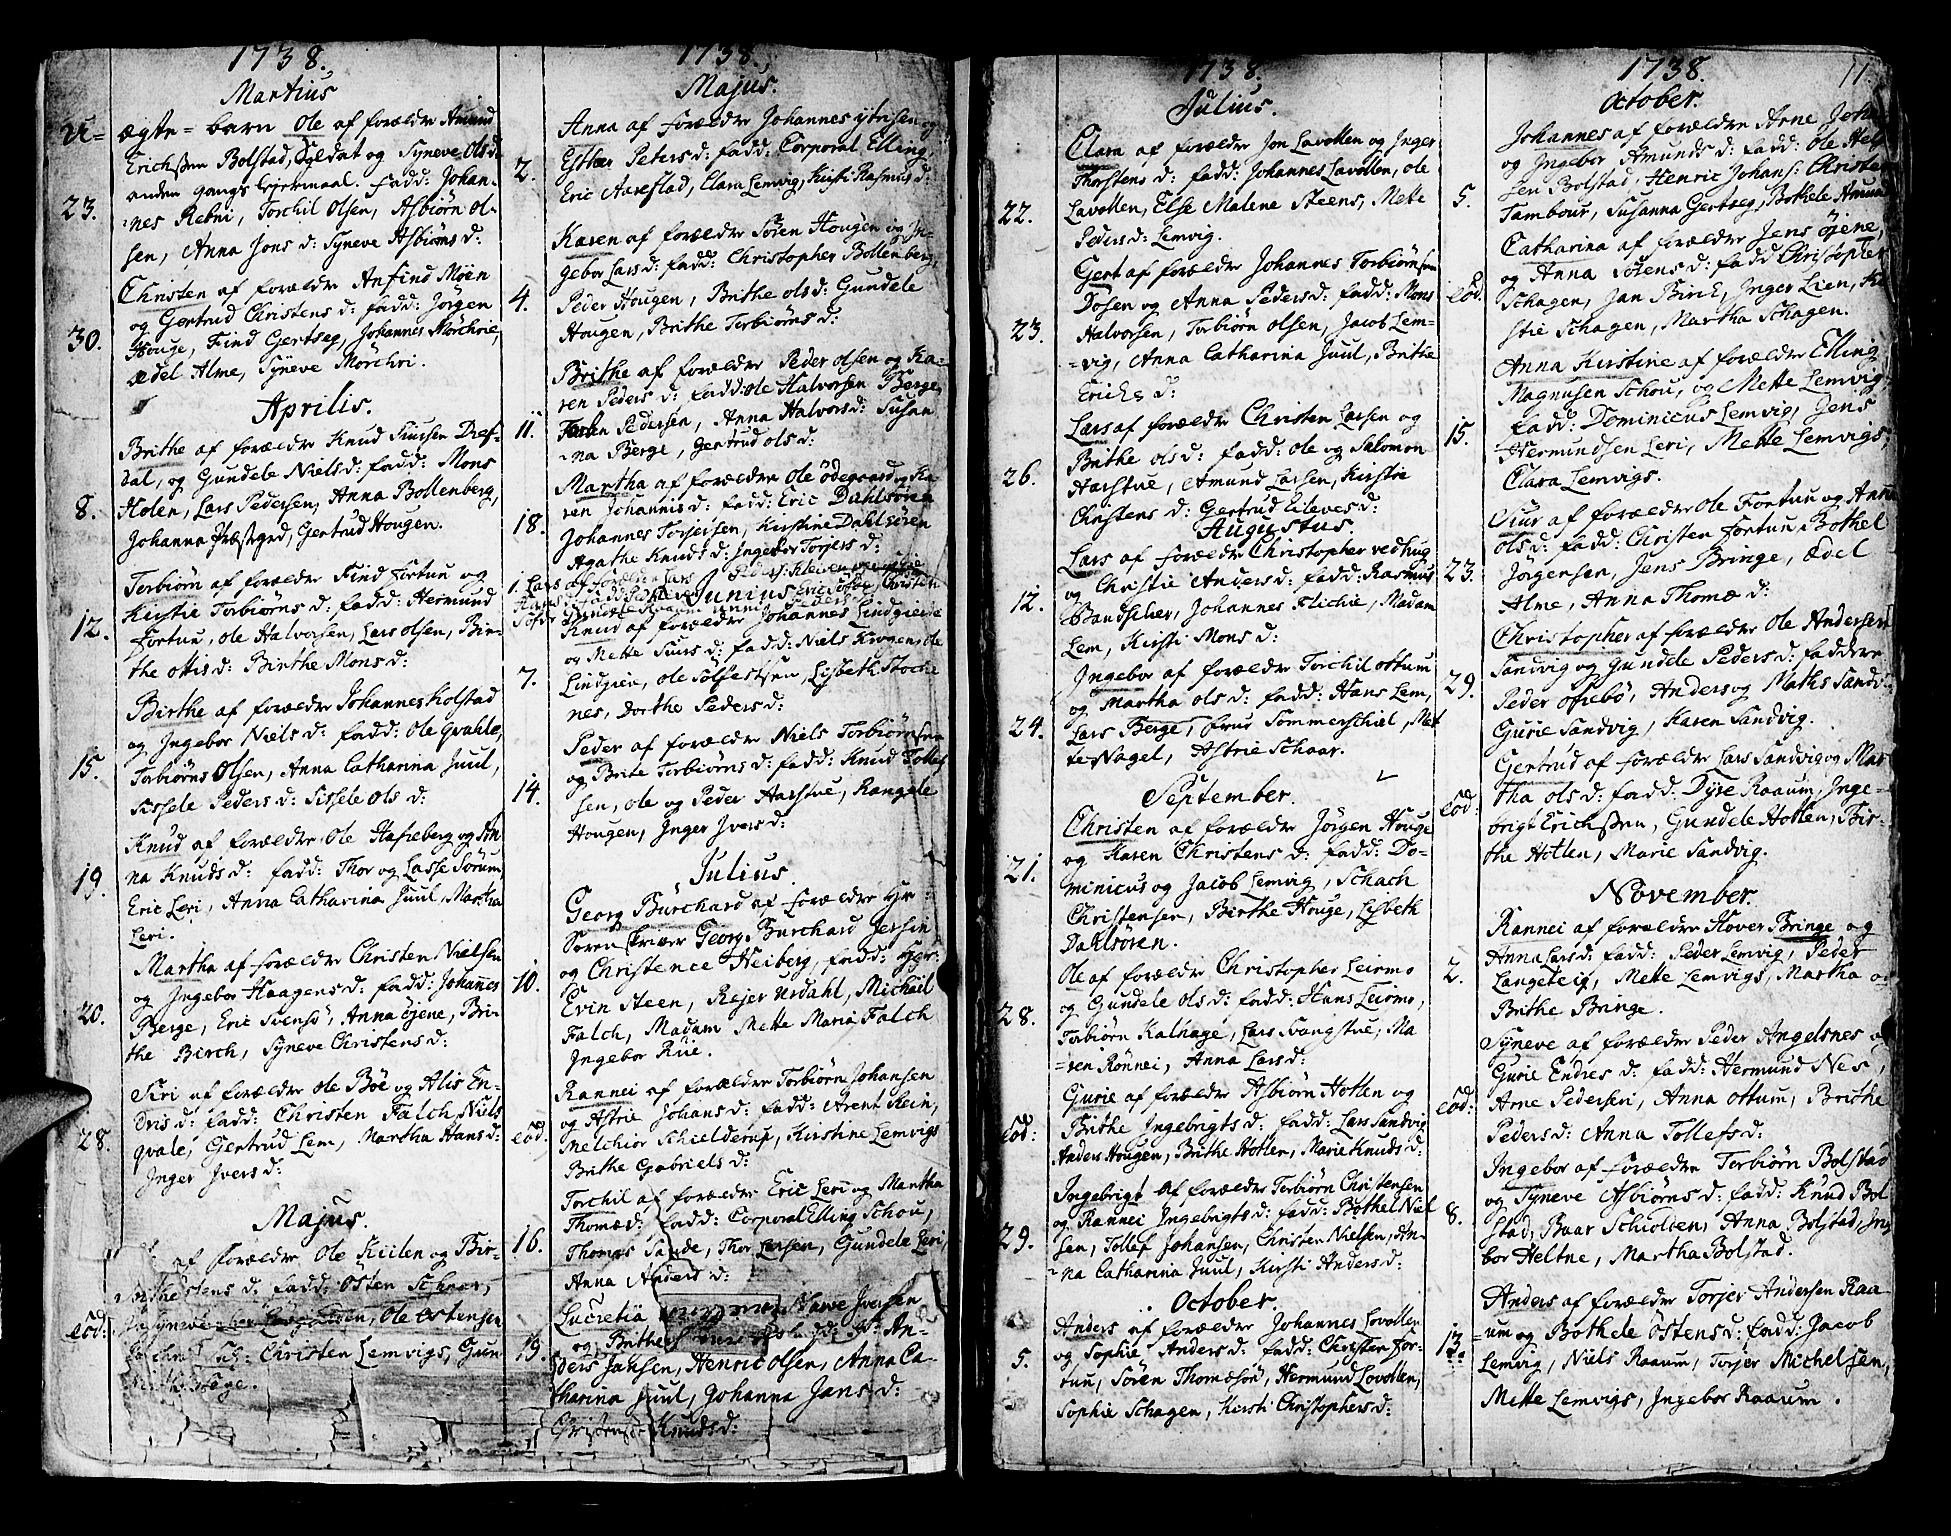 1738.
Martius
U= ægte=barn Ole af forældre Amund
Erichsen Bolstad, Soldat og Syneve Ols d:
anden gangs leiermaal. fadd: Johan-
23. nes Rebni, Torchil Olsen, Asbiørn Ol-
sen, Anna Jons d: Syneve Asbiørns d:
Christen af forældre Anfind Møen
og Gertrud Christens d: fadd: Jørgen
30. Houge, Find Gertseg, Johannes Mørchrie,
Ædel Alme, Syneve Mørchri.
Aprilis.
Brithe af forældre Knud Siursen Dref-
dal, og Gundele Niels d: fadd: Mons
8. Holen, Lars Pedersen, Anna Bollenberg,
Johanna Præstegrd, Gertrud Hougen.
Torbiørn af forældre Find Fortun og
Kirstie Torbiørns d: fadd: Hermund
12. Fortun, Ole Halvorsen, Lars Olsen, Bir-
the Ottis d: Birthe Mons d:
Birthe af forældre Johannes Kolstad
og Ingebor Niels d: fadd: Ole Qvahle,
15. Torbiørns Olsen, Anna Catharina Juul,
Sissele Peders d: Sissele Ols d:
Knud af forældre Ole Hafreberg og An
na Knuds d: fadd: Thor og Lasse Sørum,
19. Eric Leri, Anna Catharina Juul, Martha
Leri.
Martha af forældre Christen Nielsen
og Ingebor Haagens d: fadd: Johannes
20. Berge, Eric Svensø, Anna Øjene, Bri-
the Birch, Syneve Christens d:
Siri af forældre Ole Bøe og Alis En-
dris d: fadd: Christen Falch, Niels
28. qvale, Gertrud Lem, Martha Hans d:
Inger Ivers d:
Majus.
af forældre Ole Kiilen og Bir-
the stens d: fadd: Østen
eod: Ole Østensen
Christen Lemvigs, Gun

1738.
Majus.
Anna af forældre Johannes ytrisen og
2. Esther Peters d: fadd: Corporal Elling
Eric Aarestad, Clara Lemvig, Kirsti Rasmus d:
Karen af forældre Søren Hougen og In-
gebor Lars d: fadd: Christopher Bollenberg,
4. Peder Hougen, Brithe Ols d: Gundele
Hougen, Brithe Torbiørns d:
Brithe af forældre Peder Olsen og Ka-
ren Peders d: fadd: Ole Halvorsen Berge,
11. Pedersen, Anna Halvors d: Susan
na Berge, Gertrud Ols d:
Martha af forældre Ole Ødegaard og Ka
ren Johannis d: fadd: Eric Dahlsøren
18. Johannes Torjersen, Kirstine Dahlsøren
Agathe Knuds d: Ingebor Torjers d:
1. Lars af forældre Lars
Junius
Knud af forældre Johannes Lindgrien
og Mette Siurs d: fadd: Niels Krogen, Ole
7. Lindgrien, Ole Sølfestsen, Lisbeth Stoche
nes, Dorthe Peders d:
Peder af forældre Niels Torbiørnsen
og Brite Torbiørns d: fadd: Knud Tollef
14. sen, Ole og Peder Aarstue, Rangele
Hougen, Inger Ivers d:
Julius.
Georg Burchard af forældre Hr:
Soren skriver Georg Burchard Jersin
10. og Christence Heiberg, fadd: Hr:
Evin Steen, Rejer Urdahl, Michael
Falch, Madam Mette Maria Falch
Ingebor Riie.
Rannei af forældre Torbiørn Johansen
og Astrie Johans d: fadd: Arent Rein,
eod. Melchior Schielderup, Kirstine Lemvigs
Brithe Gabriels d:
Torchil af forældre Eric Leri og Martha
Thomæ d: fadd: Corporal Elling Schou,
16. Thomas Sande, Thor Larsen, Gundele Leri,
Anna Anders d:
Lucretia Iversen
og Brithe fadd: An-
19. ders Jansen, Henric Olsen, Anna Ca-
tharina Juul, Johanna Jans d:
Knuds d:

1738.
Julius.
Clara af forældre Jon Lavollen og Inger
Thorstens d: fadd: Johannes Lavollen, Ole
22. Lavollen, Else Malene Steens, Mette
Peders d: Lemvig.
Gert af forældre Johannes Torbiørnsen
Døsen og Anna Peders d: fadd: Mons
23. Halvorsen, Torbiørn Olsen, Jacob Lem-
vig, Anna Catharina Juul, Brithe
Erichs d:
Lars af forældre Christen Larsen og
Brithe Ols d: fadd: Ole og Salomon
26. Harstue, Amund Larsen, Kirstie
Christens d: Gertrud Eileves d:
Augustus
Lars af forældre Christopher vedhug
og Christie Anders d: fadd: Rasmus
12. Bandsilier, Johannes Flichie, Madam
Lem, Kirsti Mons d:
Ingebor af forældre Torchil Ottum
og Martha Ols d: fadd: Hans Lem,
24. Lars Berge, frue Sommerschiel, Met
te Nagel, Astrie Schaar.
September.
Christen af forældre Jørgen Houge
og Karen Christens d: fadd: Do-
21. minicus og Jacob Lemvig, Schach
Christensen, Birthe Houge, Lisbeth
Dahlsøren.
Ole af forældre Christopher Leirmo
og Gundele Ols d: fadd: Hans Leirmo,
28. Torbiørn Kalhage, Lars Svangstue, Ma
ren Rønnei, Anna Lars d:
Gurie af forældre Asbiørn Hotten og
eod: Brithe Ingebrigts d: fadd: Lars Sandvig
Anders Hougen, Brithe Hotlen, Marie Knuds d:
Ingebrigt af forældre Torbiørn Christensen
og Rannei Ingebrigts d: fadd: Bothel Niel
29. sen, Tollef Johansen, Christen Nielsen, An-
na Catharina Juul, Kirsti Anders d:
October.
Anders af forældre Johannes Lovollen
og Sophie Anders d: fadd: Christen For-
5. tun, Søren Thomæsøn, Hermund Lovollen,
Sophie Schagen, Kirsti Christophers d:

1738. 11.
October.
Johannes af forældre Arne Joha
og Ingebor Amunds d: fadd: Ole Hel
sen Bolstad, Henric Johans: Christen
5. Tambour, Susanna Gertseg, Bothele Amund
Catharina af forældre Jens Øjene,
og Anna Sørens d: fadd Christopher
eod. Schagen, Jan Birch, Inger Lien, Ki
stie Schagen, Martha Schagen.
Anna Kirstine af forældre Elling
Magnusen Schou, og Mette Lemvig
15. fadd: Dominicus Lemvig, Jens
Hermundsen Leri, Mette Lemvigs,
Clara Lemvigs.
Siur af forældre Ole Fortun og Anna
Ols d: fadd: Christen Fortun, Bothel
23. Jørgensen, Jens Bringe, Ædel
Alme, Anna Thomæ d:
Christopher af forældre Ole Andersen
Sandvig og Gundele Peders d: faddere
29. Peder Ofrebø, Anders og Maths Sandv:
Gurie Sandvig, Karen Sandvig.
Gertrud af forældre Lars Sandvig og Mar
eod: tha Ols d: fadd: Dyre Raaum, Inge-
brigt Erichsen, Gundele Hotlen, Bir-
the Hotlen, Marie Sandvig.
November.
Rannei af forældre Hover Bringe og
Anna Lars d: fadd: Peder Lemvig, Peder
2. Langeteig, Mette Lemvigs, Martha o
Brithe Bringe.
Syneve af forældre Peder Angelsnes o
Gurie Endres d: fadd: Hermund Nes,
eod: Arne Pedersen, Anna Ottum, Brithe
Peders d: Anna Tollefs d:
Ingebor af forældre Torbiørn Bolstad
og Syneve Asbiørns d: fadd: Knud Bol
8. stad, Baar Schiolden, Anna Bolstad, Ing
bor Heltne, Martha Bolstad.
Anders af forældre Torjer Andersen Raa-
13. um og Bothele Østens d: fadd: Jacob
Lemvig, Niels Raaum, Torjer Michelsen,
Mette Lemvigs, Ingebor Raaum.